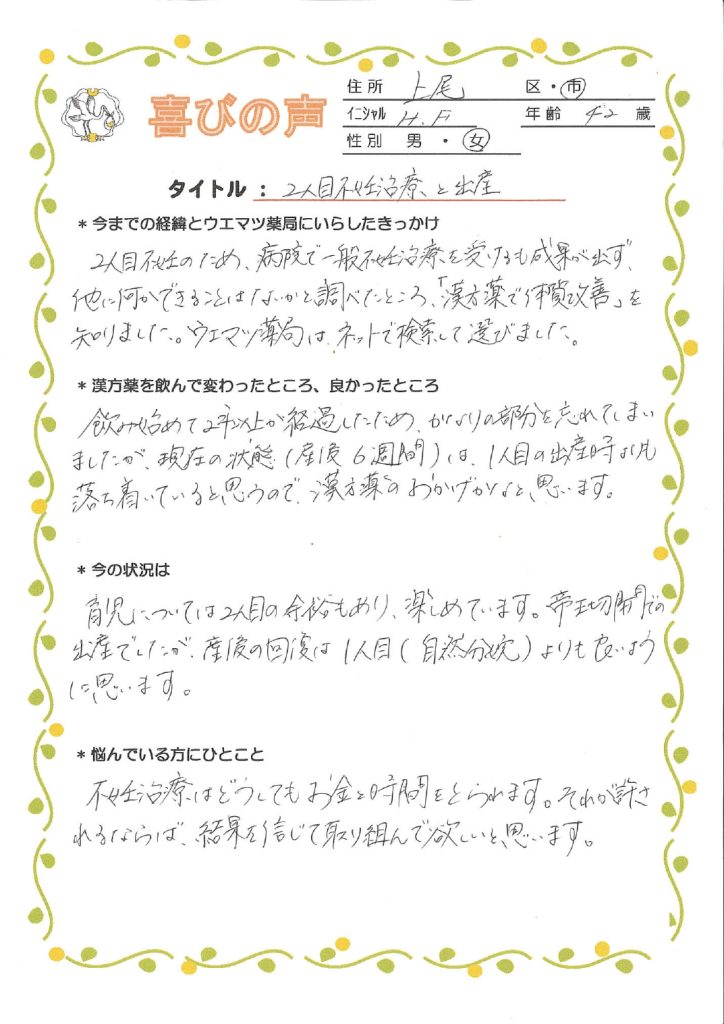 喜びの声
住所 上尾 区・市
イニシャル H.F 年齢 42 歳
性別 男・女
タイトル： 2人目不妊治療と出産
＊今までの経緯とウエマツ薬局にいらしたきっかけ
2人目不妊のため、病院で一般不妊治療を受けるも成果が出ず、
他に何かできることはないかと調べたところ、「漢方薬で体質改善」を
知りました。ウエマツ薬局は、ネットで検索して選びました。
＊漢方薬を飲んで変わったところ、良かったところ
飲み始めて2年以上が経過したため、かなりの部分を忘れてしまい
ましたが、現在の状態（産後6週間）は、1人目の出産時よりも
落ち着いていると思うので、漢方薬のおかげかなと思います。
＊今の状況は
育児については2人目の余裕もあり、楽しめています。帝王切開での
出産でしたが、産後の回復は1人目（自然分娩）よりも良いよう
に思います。
＊悩んでいる方にひとこと
不妊治療はどうしてもお金と時間をとられます。それが許さ
れるならば、結果を信じて取り組んで欲しいと思います。